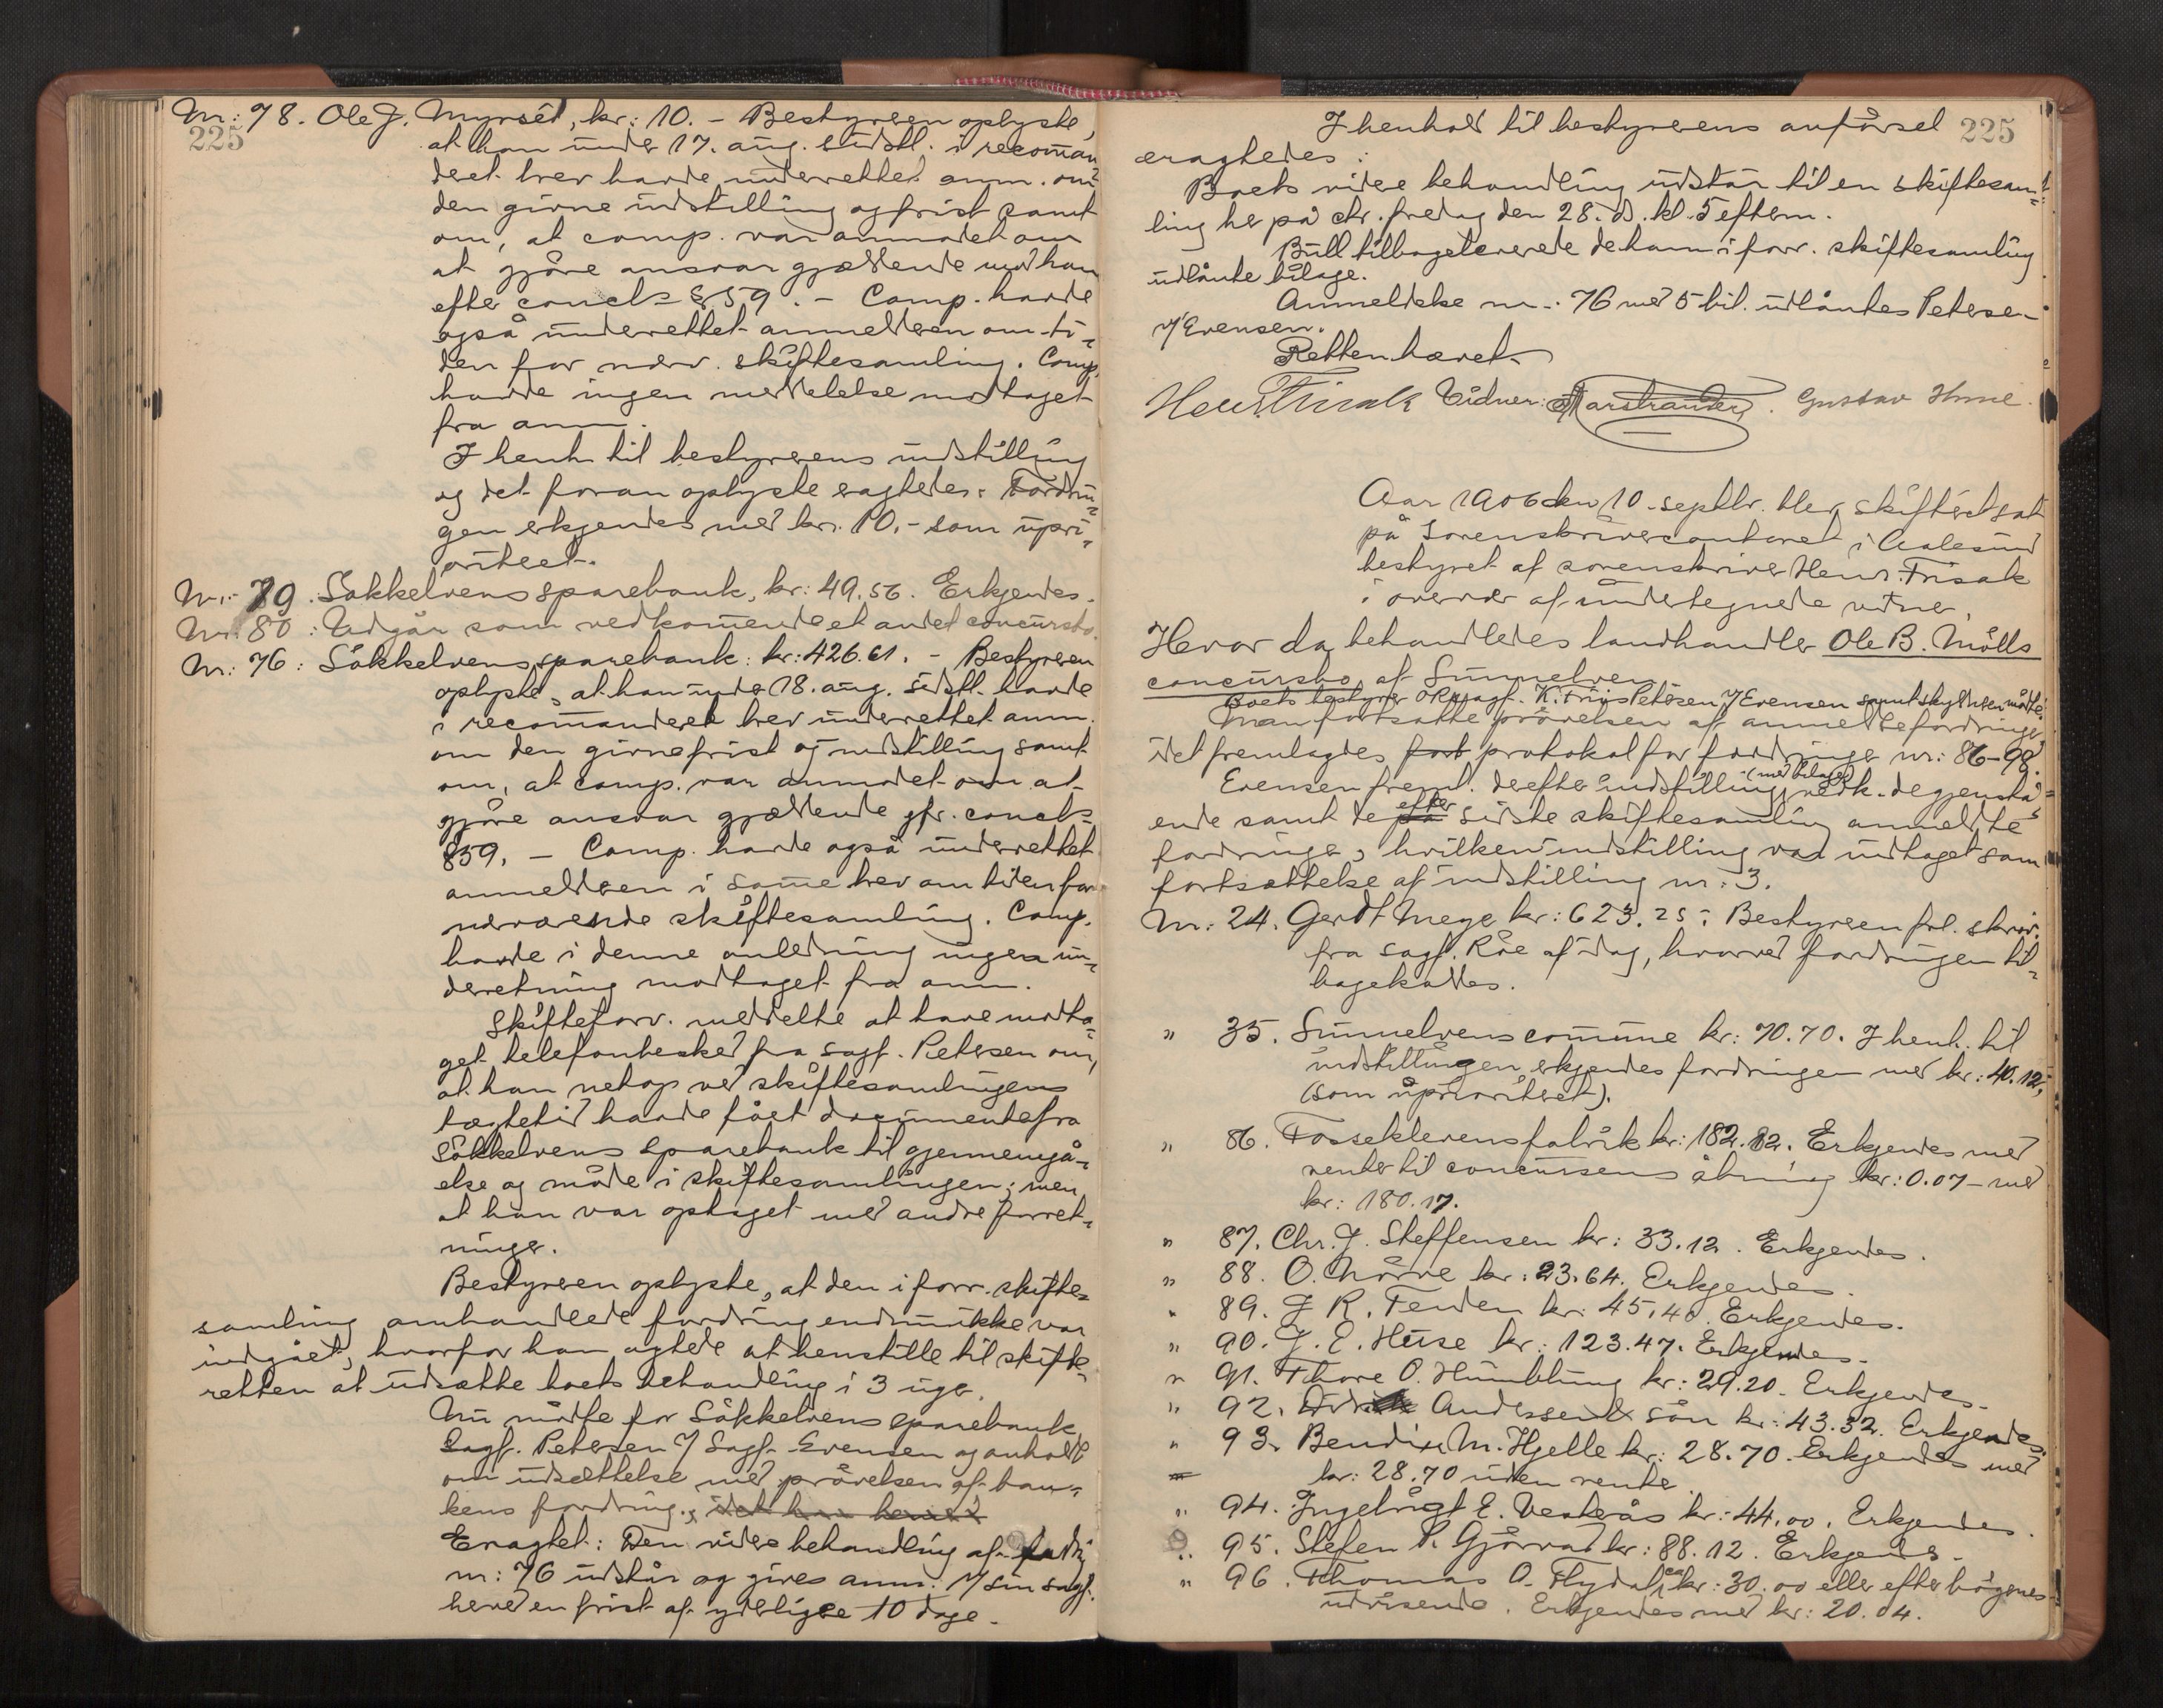 Nr: 78. Ole J. Myrsét, kr: 10. - Bestyreren oplyste,
225
at han under 17. aug. sidstl. i recoman
deret brev havde underrettet anm. om
den givne indstilling og frist samt
om, at comp. var anmodet om
at gjøre ansvar gjældende mod ham
efter concls § 59. - Comp. havde
også underrettet anmelderen om ti-
den for nærv. skiftesamling. Comp.
havde ingen meddelelse modtaget
fra anm.
I henh. til bestyrerens indstilling
og det foran oplyste eragtedes: Fordrin-
gen erkjendes med kr. 10.- som upri-
oritect.
Nr: 79. Søkkelvens sparebank, kr: 49.56. Erkjendes.
Nr: 80: Udgår som vedkomende et andet concursbo.
Nr: 76: Søkkelvens sparebank: kr: 426.61. - Bestyreren
oplyste, at han under 18. aug. sidstl. havde
i recomanderet brev underrettet anm.
om den givne frist og indstilling samt
om, at comp. var anmodet om at
gjøre ansvar gjældende jfr. concls
§59. - Comp. havde også underrettet
anmelderen i same brev om tiden for
nærværende skiftesamling. Comp.
havde i denne anledning ingen un-
derretning modtaget fra anm.
Skifteforv. meddelte at have modta-
get telefonbesked fra sagf. Petersen om,
at han netop ved skiftesamlingens
tægtetid havde fået documenter fra
Søkkelvens Sparebank til gjennemgå-
else og møde i skiftesamlingen; men
at han var optaget med andre forret-
ninger.
Bestyreren oplyste, at den i forr. skifte-
samling omhandlede fordring endnu ikke var
indgået, hvorfor han agtede at henstille til skifte-
retten at udsætte boets behandling i 3 uger.
Nu mødte for Søkkelvens sparebank
Sagf. Petersen v/ Sagf. Evensen og anholdt
om udsættelse med prøvelsen af ban-
kens fordring, idet han herved
Eragtet: Den videre behandling af fordr.
nr: 76 udstår og gives anm. v/ sin sagf.
herved en frist af yderligere 10 dage.
I henhold til bestyrerens anførsel
225
eragtedes:
Boets videre behandling udstår til en skiftesam-
ling her på ctr. fredag den 28. ds. kl. 5 efterm.
Bull tilbageleverede de ham i forr. skiftesamling
udlånte bilage.
Anmeldelse nr: 76 med 5 bil. udlåntes Petersen
v/ Evensen.
Retten hævet.
Henr. Frisak Vidner: Marstrander. Gustav Hme.
Aar 1906 den 10. septbr. blev skifteret sat
på Sorenskrivercontoret i Aalesund
bestyret af sorenskriver Henr. Frisak
i overvær af undertegnede vidner,
Hvor da behandledes landhandler Ole B. Mølls
concursbo af Sunnelven.
Boets bestyrer O.R.sagf. K. Friis Petersen v/ Evensen samt skyldneren mødte.
Man fortsatte prøvelsen af anmeldte fordringer
idet fremlagdes fort protokol for fordringer nr: 86-98.
Evensen freml. derefter indstilling (med bilage) vedk. de gjenstå-
ende samt de på efter sidste skiftesamling anmeldte
fordringer, hvilken indstilling var indtaget som
fortsættelse af indstilling nr: 3.
Nr: 24. Gerdt Meyer kr: 623.25: Bestyreren frl. skriv.
fra sagf. Råe af idag, hvorved fordringen til-
bagekaldes.
" 35. Sunnelvens comune kr: 70.70. I henh. til
indstillingen erkjendes fordringen med kr: 40.12,
(som uprioriteret).
" 86. Fosseklevens fabrik kr: 182.82. Erkjendes med
renter til concursens åbning kr: 0.07 - med
kr: 180.17.
" 87. Chr. J. Steffensen kr: 33.12. Erkjendes.
" 88. O. Nørve kr: 23.64. Erkjendes.
" 89. J R. Tenden kr: 45.40. Erkjendes.
" 90. J. E. Huse kr: 123.47. Erkjendes.
" 91. Thore O. Humblung kr: 29.20. Erkjendes.
" 92. Andersen & søn kr: 43.32. Erkjendes.
" 93. Bendix M. Hjelle kr: 28.70. Erkjendes med
kr: 28.70 uden rente.
" 94. Ingebrigt E. Vesterås kr: 44.00. Erkjendes.
" 95. Stefen P. Gjørvad kr: 88.12. Erkjendes.
" 96. Thomas O. Flydal, ca kr: 30.00 eller efter bøgernes
udvisende. Erkjendes med kr: 20.04.